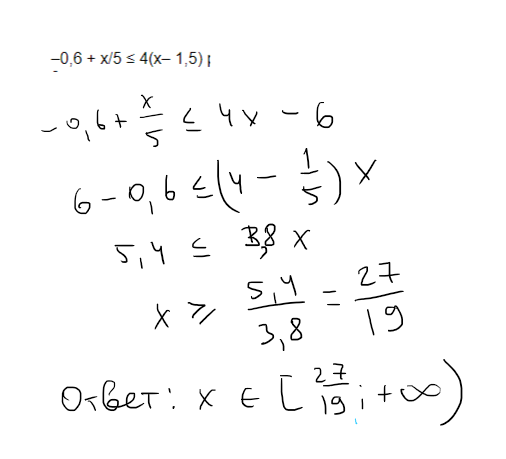 –0,6 + x/5 ≤ 4(x– 1,5) ;
-0,6 + x/5 ≤ 4x - 6
6 - 0,6 ≤ (4 - 1/5) x
5,4 ≤ 3,8 x
x ⩾ 5,4/3,8 = 27/19
Ответ: x ∈ [27/19; +∞)